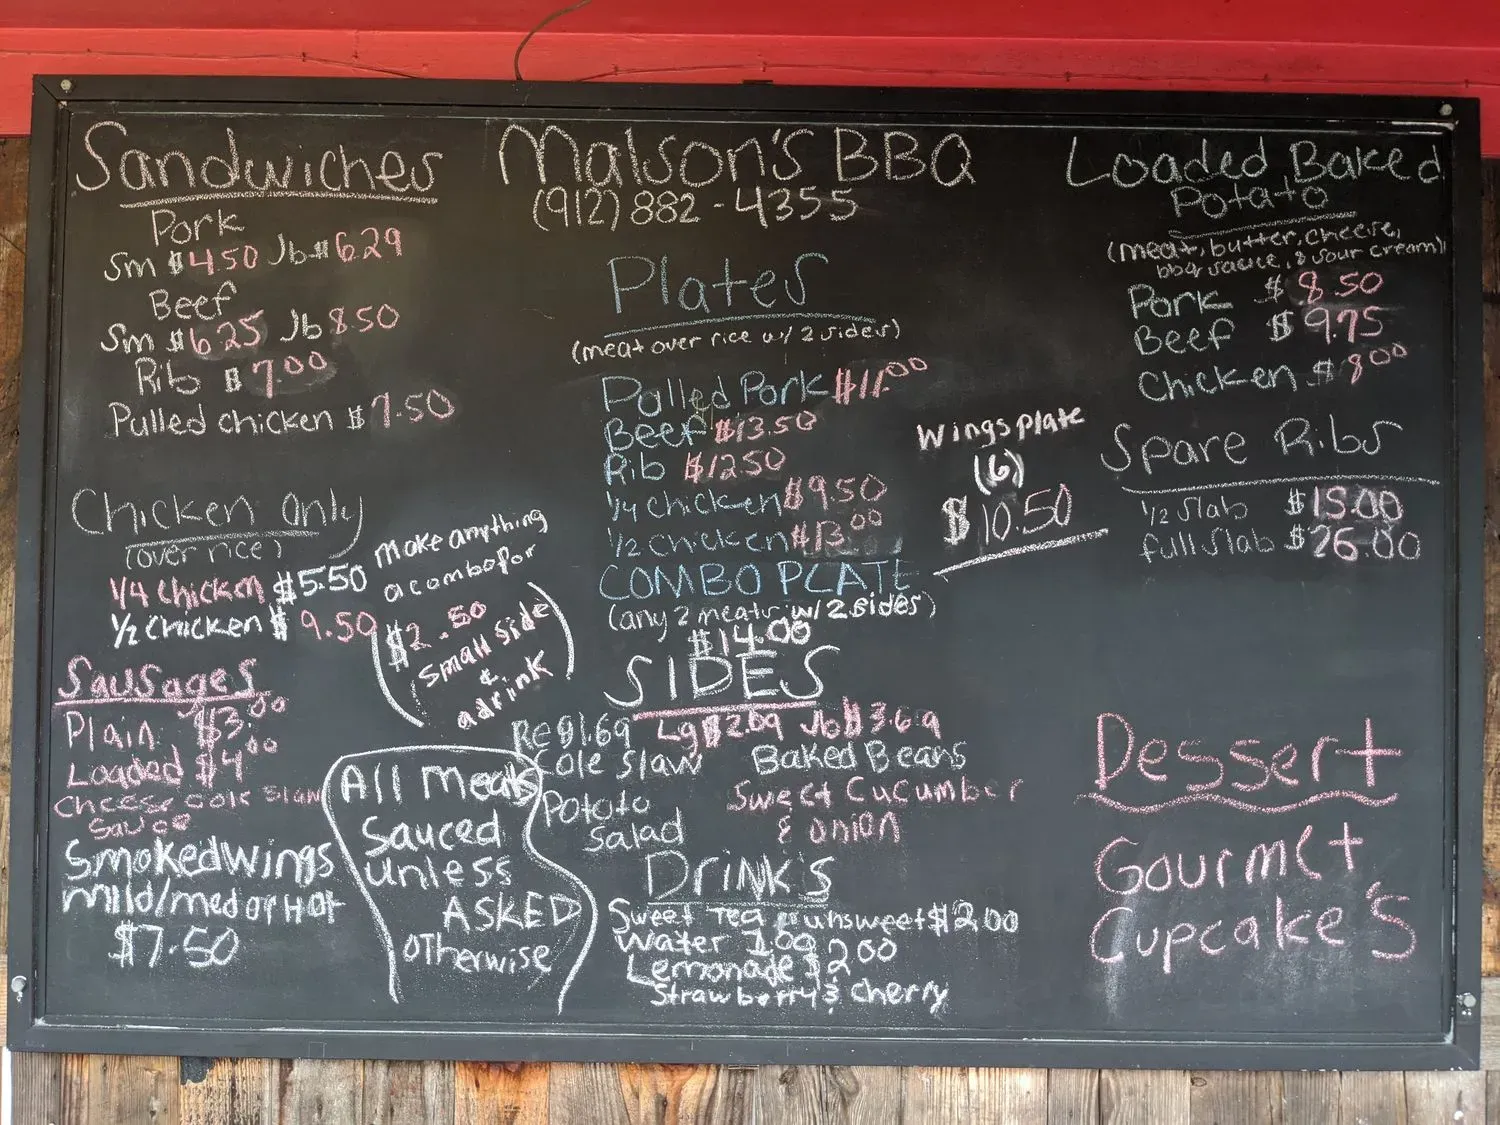 Sandwiches
Pork
Sm $4.50 Jb $6.29
Beef
Sm $6.25 Jb 8.50
Rib $7.00
Pulled chicken $7.50
Chicken Only
(over rice)
1/4 chicken $5.50
1/2 chicken $9.50
make anything
a combo for
$2.50
small side
&
a drink
Sausages
Plain $3.00
Loaded $4.00
cheese cole slaw
sauce
Smoked wings
mild/med or Hot
$7.50
All meats
sauced
unless
ASKED
otherwise
Malson's BBQ
(912) 882-4355
Plates
(meat over rice w/ 2 sides)
Pulled Pork $11.00
Beef $13.50
Rib $12.50
1/4 chicken $9.50
1/2 chicken $13.00
COMBO PLATE
(any 2 meats w/ 2 sides)
$14.00
wings plate
(6)
$10.50
SIDES
Reg 1.69 Lg $2.09 Jb $3.69
Cole slaw Baked Beans
Potato Sweet Cucumber
Salad & onion
Drink's
Sweet Tea unsweet $2.00
Water 1.00
Lemonade $2.00
Strawberry & cherry
Loaded Baked
Potato
(meat, butter, cheese,
bbq sauce, & sour cream)
Pork $8.50
Beef $9.75
Chicken $8.00
Spare Ribs
1/2 slab $15.00
full slab $26.00
Dessert
Gourmet
Cupcake's